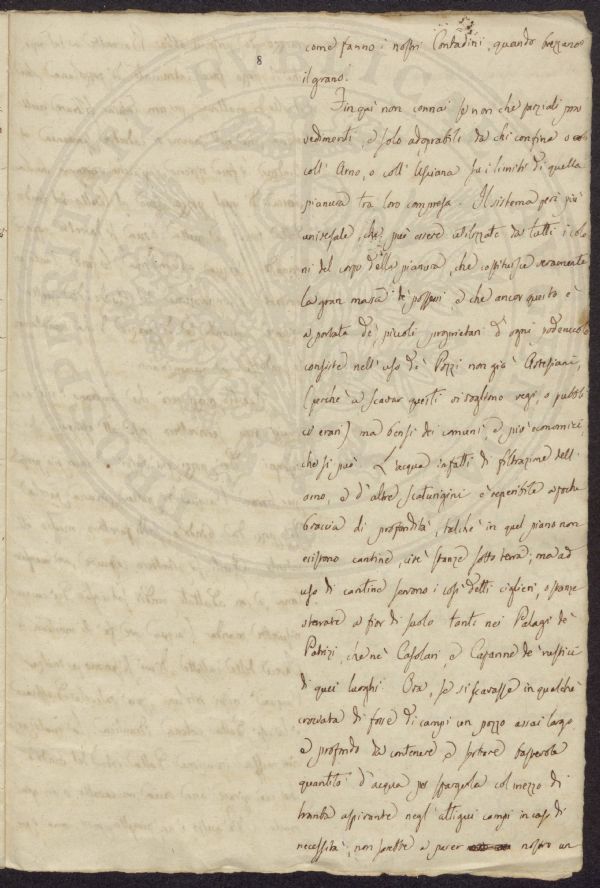 8
come fanno i nostri Contadini, quando brezzano
il grano.
Fin quì non connai se non che parziali prov
vedimenti, e solo adoprabili da chi confina o
coll' Arno, o coll' Usciana su i limiti di quella
pianura tra loro compresa. Il sistema però più
universale, che può essere utilizzato da tutti i colo
ni del corpo della pianura, che costituisce veramente
la gran massa de' possessi, e che ancor questo è
a portata de' piccoli proprietari d' ogni poderuccio
consiste nell' uso de' Pozzi non già Artesiani,
(perchè a scavar questi vi vogliono regi, o pubbli
ci erari) ma bensì dei comuni, e più economici,
che si può. L' acqua infatti di filtrazione dell'
arno, e d' altre scaturigini è reperibile a poche
braccia di profondità, talchè in quel piano non
esistono cantine, cioè stanze sotto terra; ma ad
uso di cantine servono i così detti ciglieri, o stanze
sterrate a fior di suolo tanti nei Palagi de'
Patrizi, che nè Casolari, e Capanne de' rustici
di quei luoghi. Ora, se si scavasse in qualche
crociata di fosse di campi un pozzo assai largo
e profondo da contenere, e portare bastevole
quantità d' acqua per spargerla col mezzo di
tromba aspirante negl' attigui campi in caso di
necessità, non sarebbe a parer nostro un